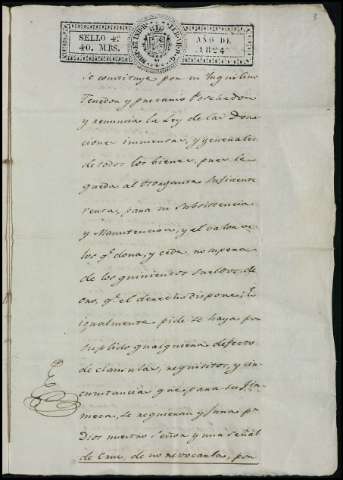 SELLO 4º
40. MRS.
AÑO DE
1824
se constituye por su Inquilino
Tenedor y precario Poseedor
y renuncia la Ley de las Dona
ciones inmensas, y generales
de todos los bienes, pues le
queda al otorgante suficiente
renta, para su subsistencia
y Manutencion, y el valor de
los qe dona, y cede, no supera
de los quinientos sueldos de
oro, qe el derecho dispone; E
igualmente pide se haya por
suplido qualquiera defecto
de clausulas, requisitos, y cir
cunstancias que, para su fir
meza, se requieran y jura por
Dios nuestro Señor y una señal
de Cruz, de no revocarla, por